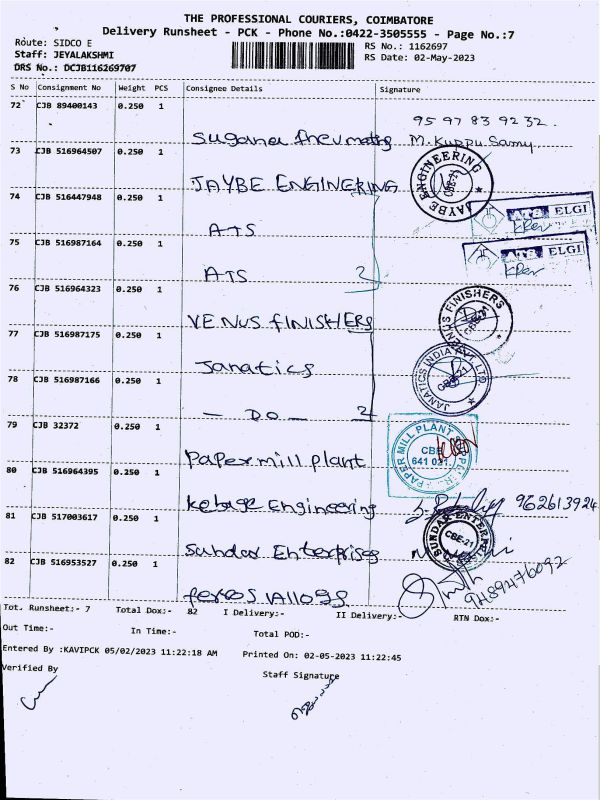 THE PROFESSIONAL COURIERS, COIMBATORE
Delivery Runsheet - PCK - Phone No.:0422-3505555 - Page No.:7
Route: SIDCO E
RS No.: 1162697
Staff: JEYALAKSHMI
RS Date: 02-May-2023
DRS No.: DCJB116269707
S No Consignment No Weight PCS Consignee Details Signature
72 CJB 89400143 0.250 1
9597839232.
Suguna Pneumatics M. Kuppu Samy
73 CJB 516964507 0.250 1
JAYBE ENGINERING
JAYBE ENGINEERING CBE-21
74 CJB 516447948 0.250 1
ATS
ATS ELGI
75 CJB 516987164 0.250 1
ATS 2
ATS ELGI
76 CJB 516964323 0.250 1
VENUS FINISHERS
VENUS FINISHERS CBE-21
77 CJB 516987175 0.250 1
Janatics
JANATICS INDIA PVT. LTD. CBE-21
78 CJB 516987166 0.250 1
- DO - 2
79 CJB 32372 0.250 1
Paper mill plant
PAPER MILL PLANT CBE 641 021
80 CJB 516964395 0.250 1
Ketage Engineering 962613924
81 CJB 517003617 0.250 1
Sundar Enterprises
SUNDAR ENTER CBE-21
82 CJB 516953527 0.250 1
ferros Alloys 9489476092
Tot. Runsheet:- 7 Total Dox:- 82 I Delivery:- II Delivery:- RTN Dox:-
Out Time:- In Time:- Total POD:-
Entered By :KAVIPCK 05/02/2023 11:22:18 AM Printed On: 02-05-2023 11:22:45
Verified By Staff Signature